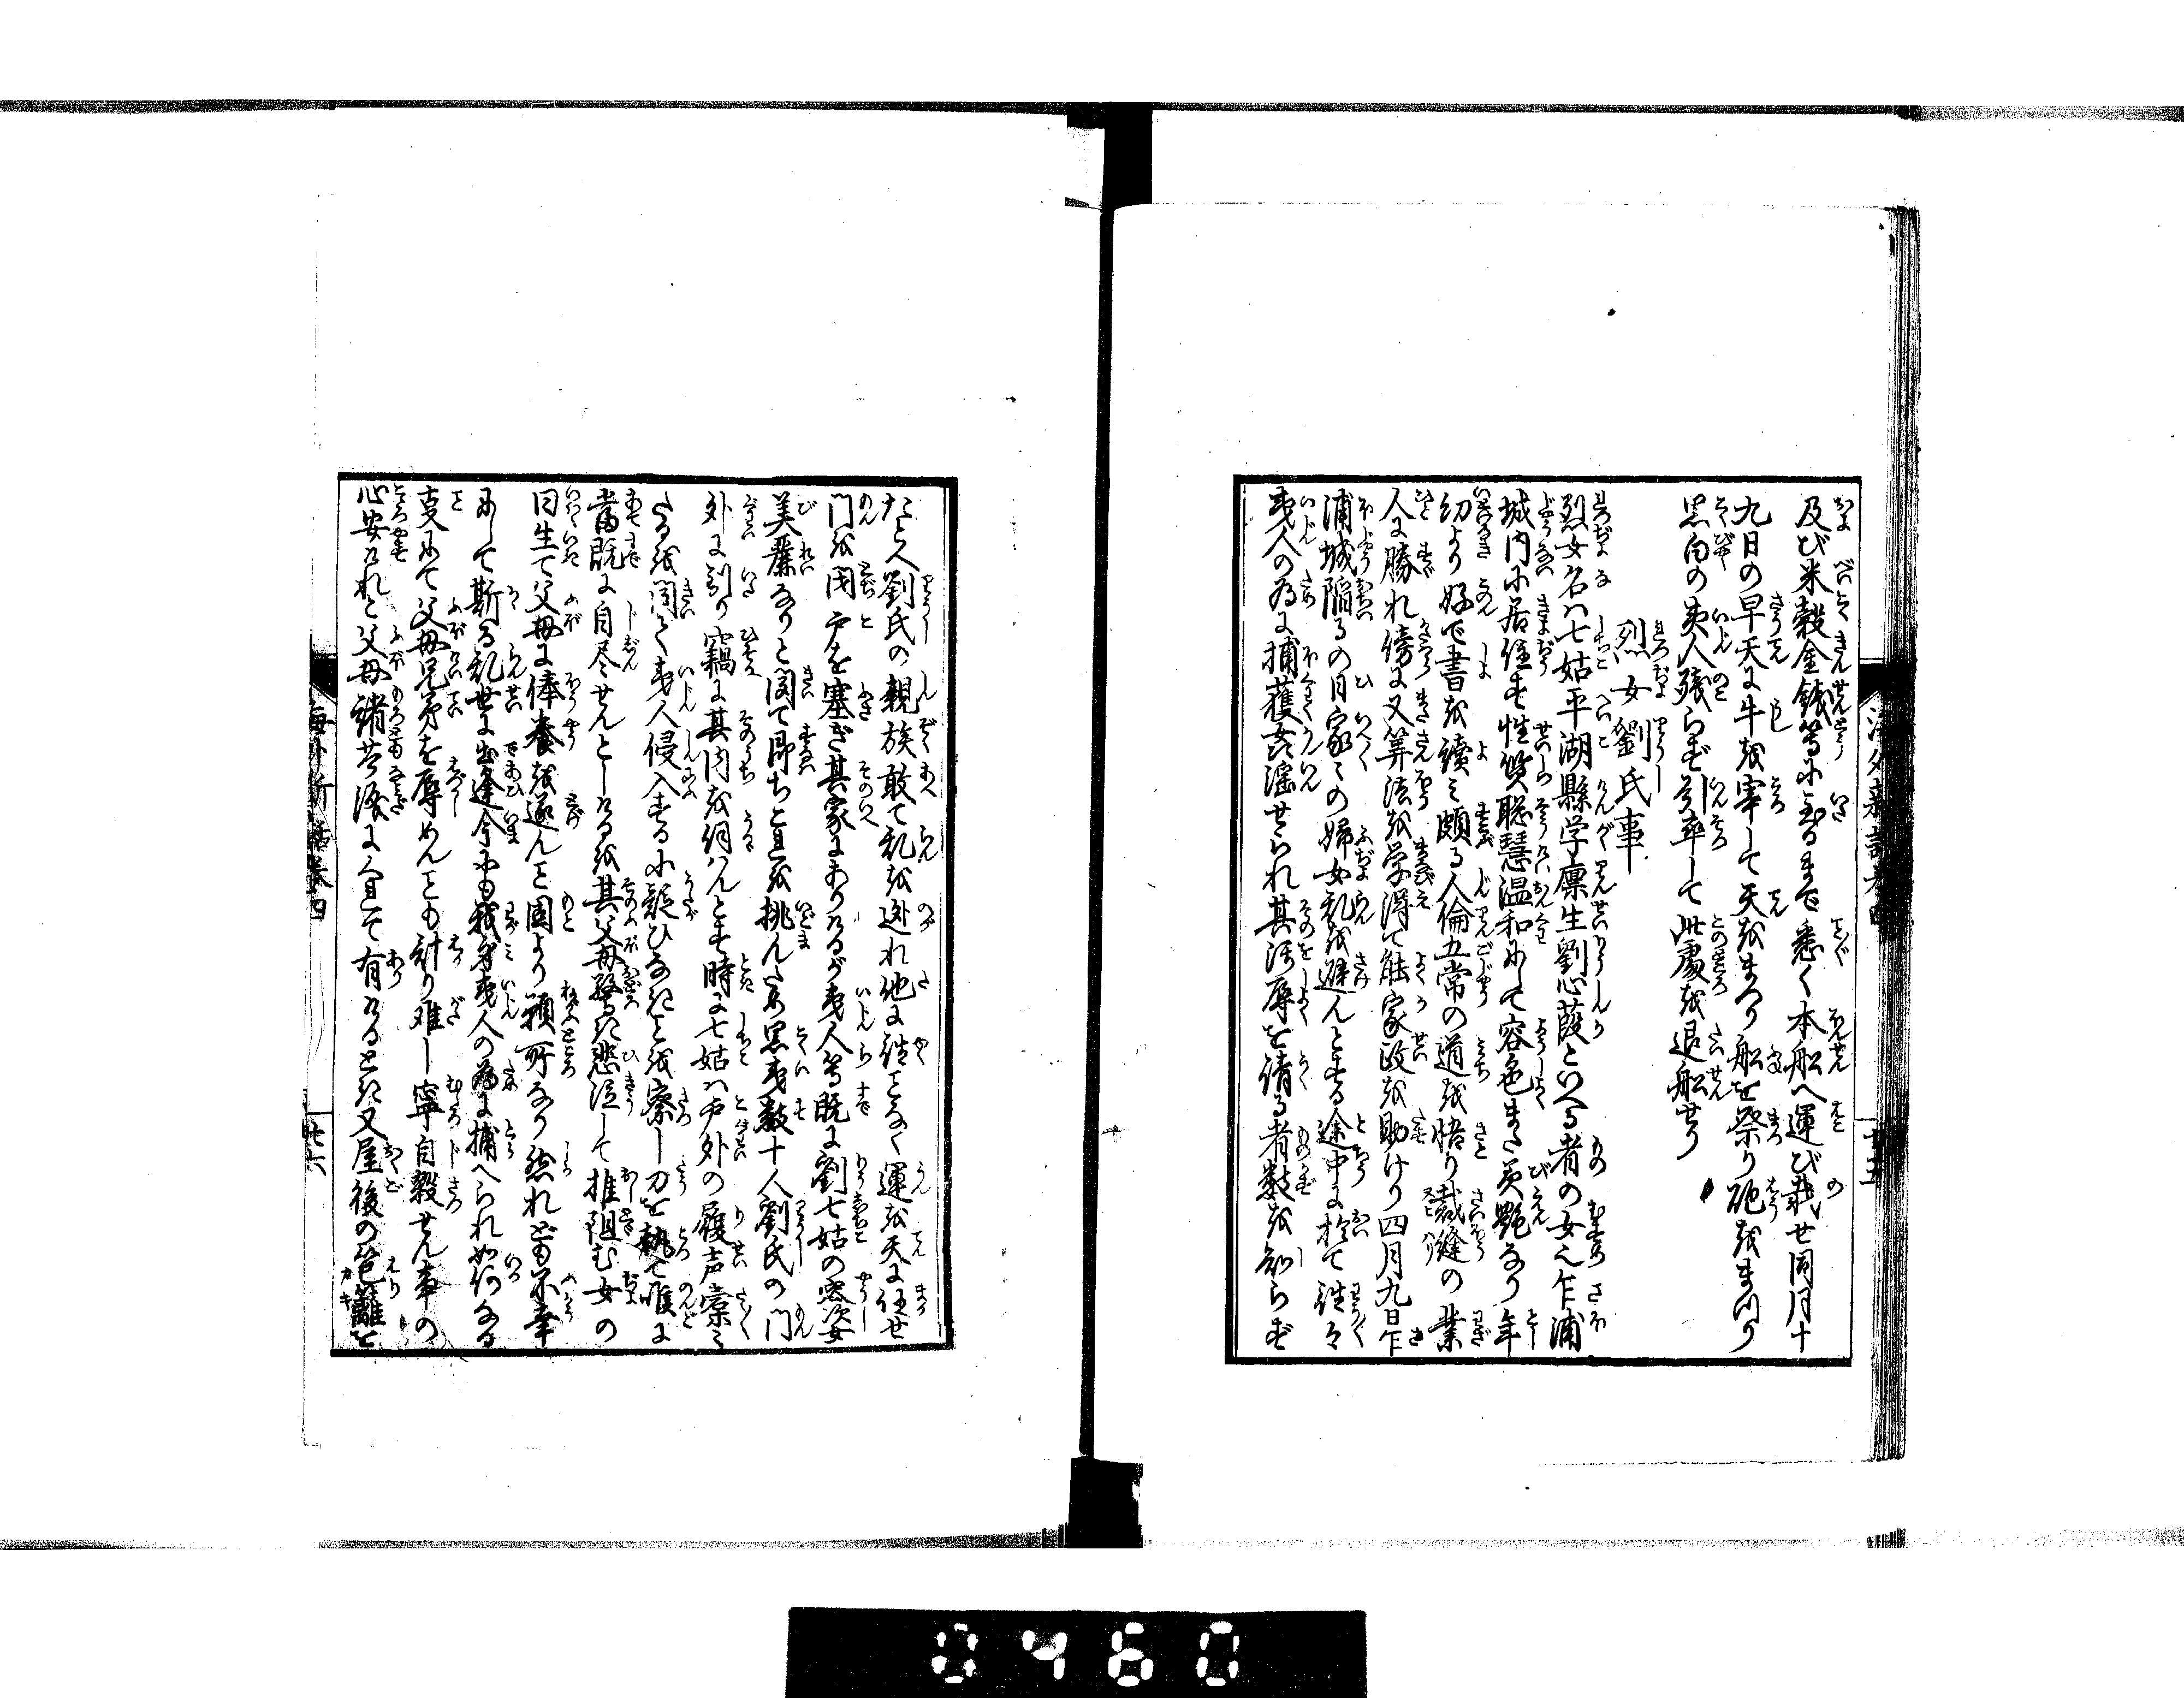 及び米穀金銭等に至るまで悉く本船へ運び載せ同月十
九日の早天に牛を宰して天をまつり船を祭り砲をまつり
黒白の夷人残らず引率して此處を退船せり
烈女劉氏事
烈女名ハ七姑平湖縣学廩生劉心葭といへる者の女也乍浦
城内に居住す性質聡慧温和にして容色また美艶なり年
幼より好で書を讀ミ頗る人倫五常の道を悟り裁縫の業
人に勝れ傍に又算法を学得て能家政を助けり四月九日乍
浦城陥るの日家〻の婦女乱を避んとする途中に於て往〻
夷人の為に捕獲姦淫せられ其汚辱を請る者数を知らず
たゞ人劉氏の親族敢て乱を迯れ他に往ことなく運を天に任せ
門を闭戸を塞ぎ其家にありけるが夷人等既に劉七姑の容姿
美麗なりと聞て即ち是を挑んため黒夷数十人劉氏の門
外に到り竊に其内を伺ハんとす時に七姑ハ戸外の履声橐〻
たるを聞く夷人侵入するに疑ひなきことを察し刀を執て喉に
當既に自尽せんとしけるを其父母驚き悲泣して推阻む女の
曰生て父母に俸養を遂んこと固より願所なり然れども不幸
にして斯る乱世に出逢今にも我身夷人の為に捕へられ如何なる
事にて父母兄弟を辱めんことも計り难し寧自殺せん事の
心安けれと父母諸共涙に有けるとき又屋後の笆籬を
海外新話巻四
廿五
海外新話巻四
廿六
0460